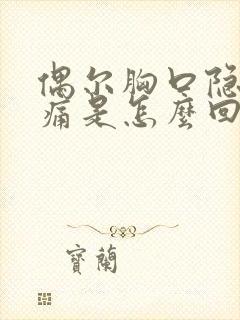 偶尔胸口隐
痛是怎麼回
寶蘭